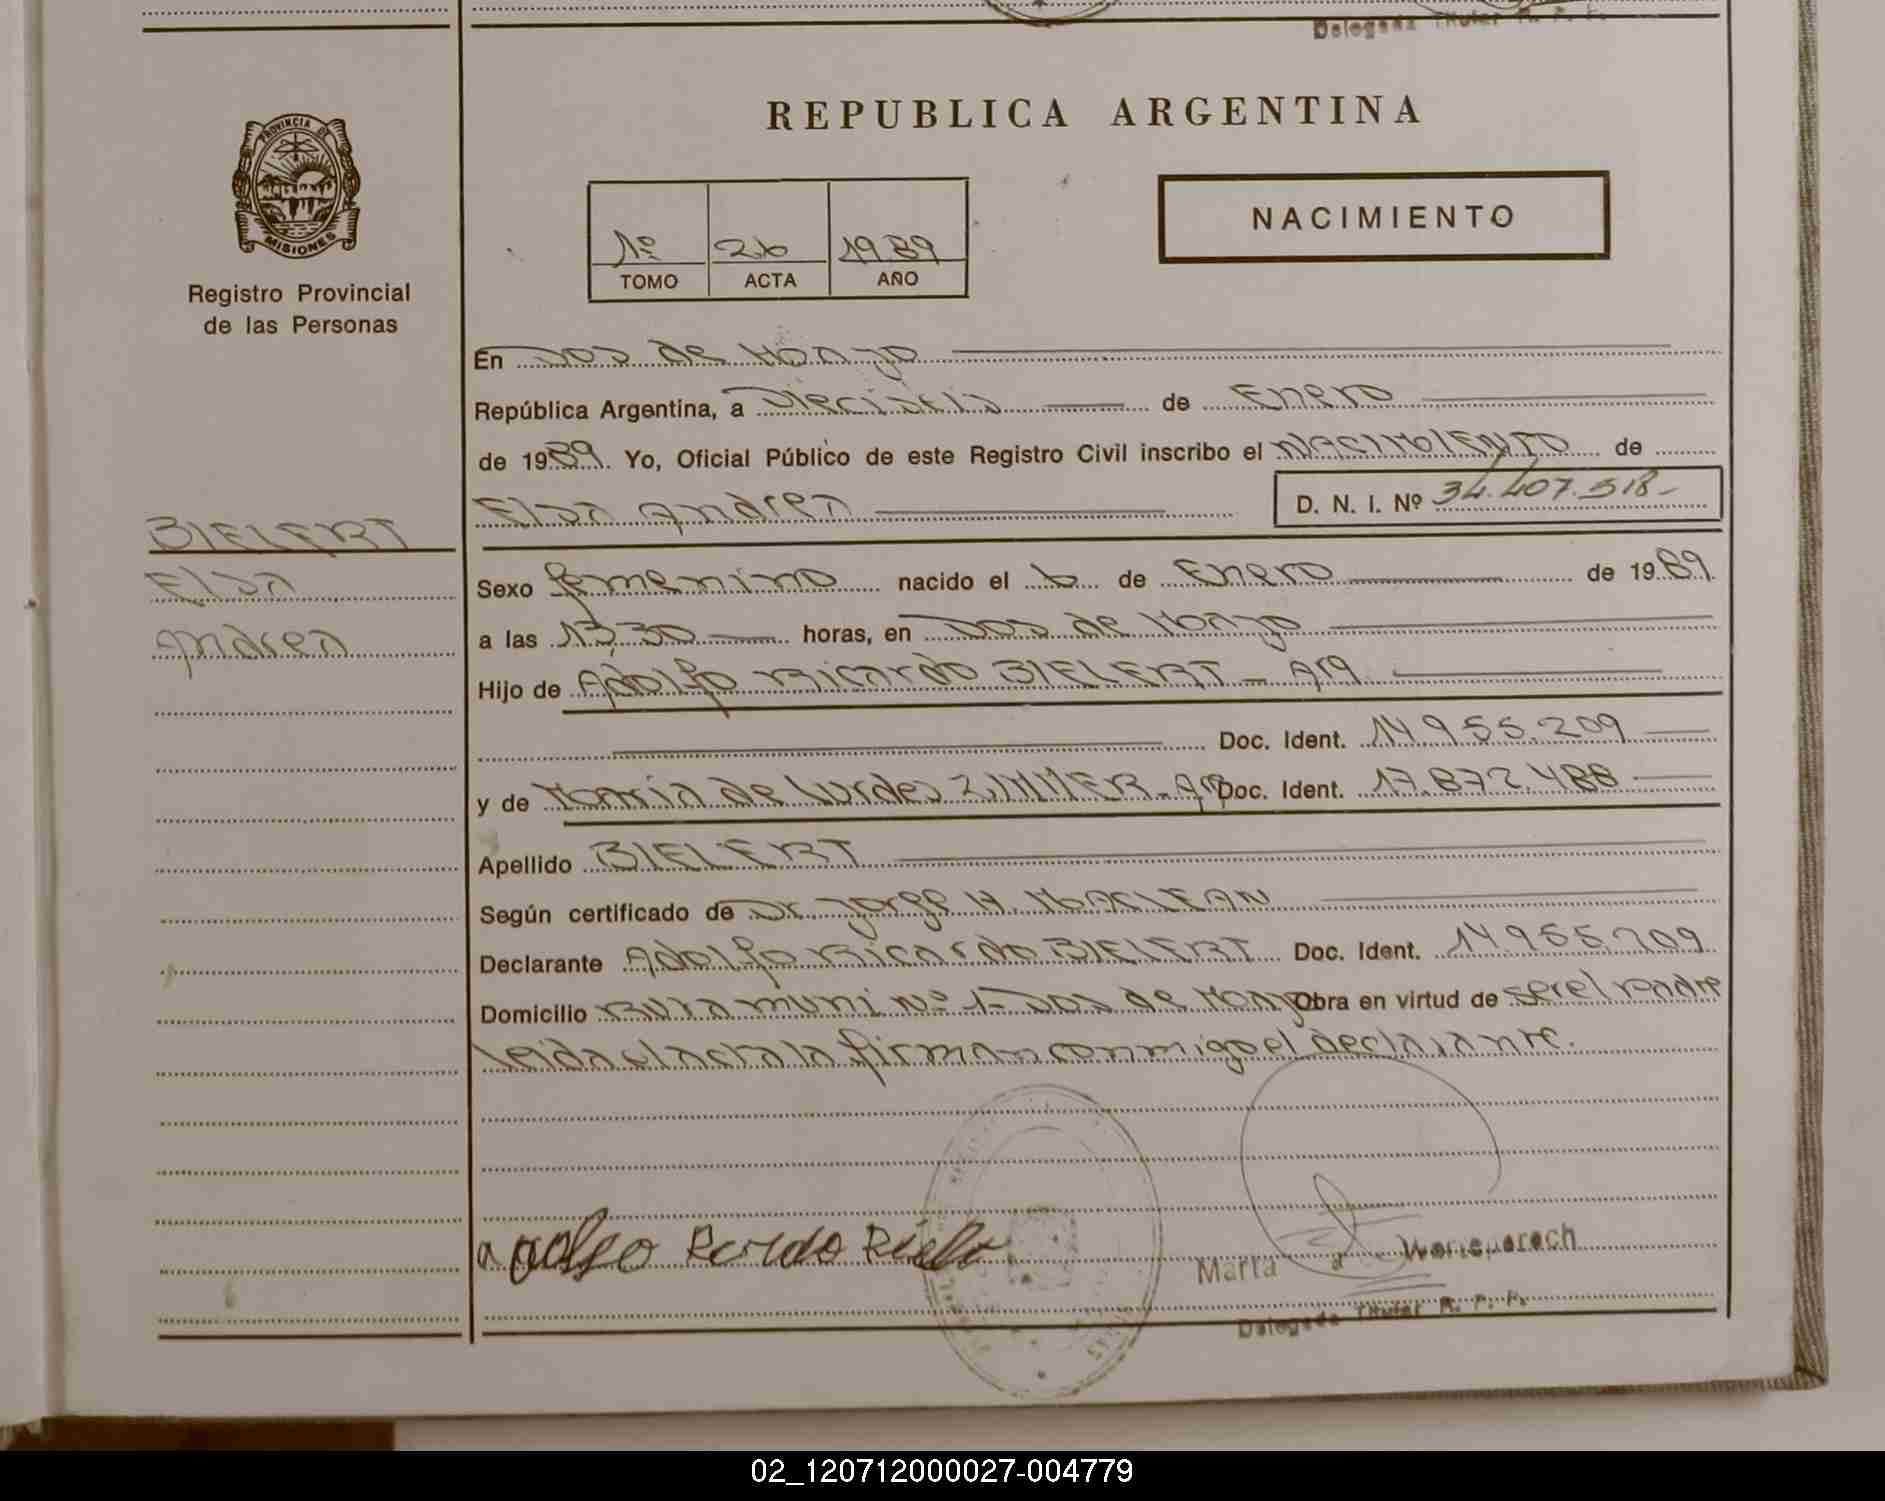 Delegada Titular R. P. P.
PROVINCIA DE
MISIONES
Registro Provincial
de las Personas
REPUBLICA ARGENTINA
NACIMIENTO
1º 26 1989
TOMO ACTA AÑO
En Dos de Mayo
República Argentina, a Dieciseis de Enero
de 1989. Yo, Oficial Público de este Registro Civil inscribo el NACIMIENTO de
Elsa Andrea
D. N. I. Nº 34.407.518-
BIELERT
Elsa
Andrea
Sexo femenino nacido el 6 de Enero de 1989
a las 13,30 horas, en Dos de Mayo
Hijo de Adolfo Ricardo BIELERT - Arg
Doc. Ident. 14.955.209
y de María de Lurdes ZIMMER - Arg Doc. Ident. 17.872.488
Apellido BIELERT
Según certificado de Dr. Jorge H. MACLEAN
Declarante Adolfo Ricardo BIELERT Doc. Ident. 14.955.209
Domicilio Ruta muni Nº 1- Dos de Mayo Obra en virtud de ser el padre
leida el acta la firman conmigo el declarante.
Marta
Delegada Titular R. P. P.
02_120712000027-004779